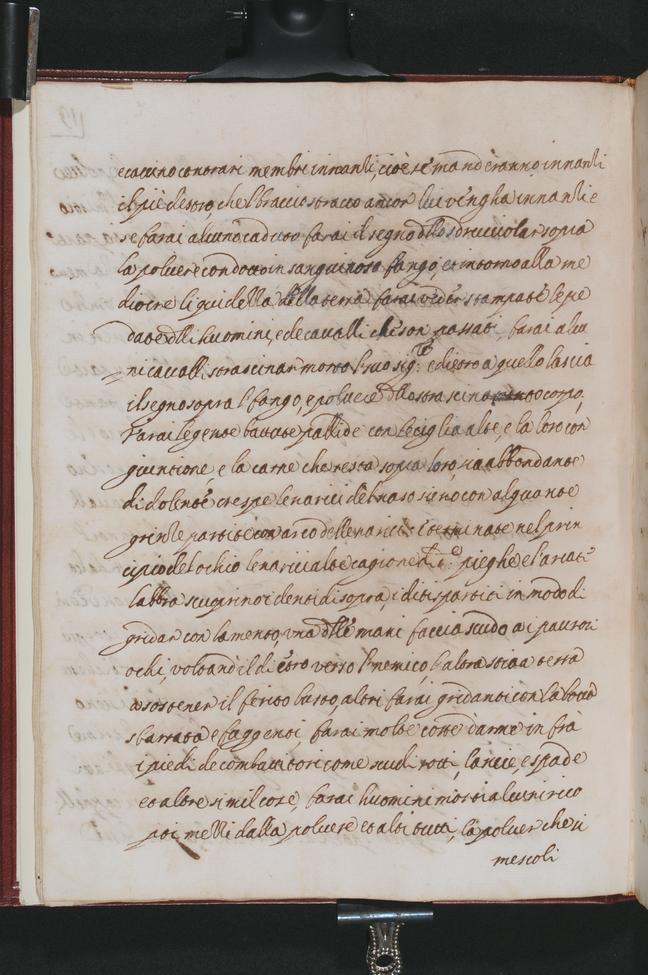 ecaccino con trari membri innanti, cioè se manderanno innanti
il piè destro, che'l braccio stracco ancor lui vengha innanti e
se farai alcuno caduto farai il segno dello sdrucciolar sopra
la polvere condotto in sanguinoso fango, et intorno alla me
diocre liquidella della terra farai veder stampate le pe
date delli huomini, e de cavalli che son passati, farai alcu
ni cavalli strascinar morto l suo sig.re e dietro a quello lascia
il segno sopra l fango, e polvere dello strascinato corpo,
Farai le gente battute pallide con le ciglia alte, e la loro con
giuntione, e la carne che resta sopra loro, sia abbondante
di dolente crespe le narici del naso siano con alquante
grinze partite con arco delle narici e terminate nel prin
cipio del ochio le narici alte cagione di d.e pieghe e l'arcate
labbra scuprino i denti di sopra, i di tispartiti in modo di
gridar con lamento, una delle mani faccia scudo ai paurosi
ochi, voltando il di dentro verso l nemico, l'altra stia a terra
a sostener il ferito busto, altri farai gridanti con la bocca
sbarrata e faggenti, farai molte sorte d'arme infra
i piedi de combattitori come scudi rotti, lancie, e spade
et altre simil cose, farai huomini morti alcuni rico
poi metti dalla polvere et altri tutti, la polver che si
mescoli